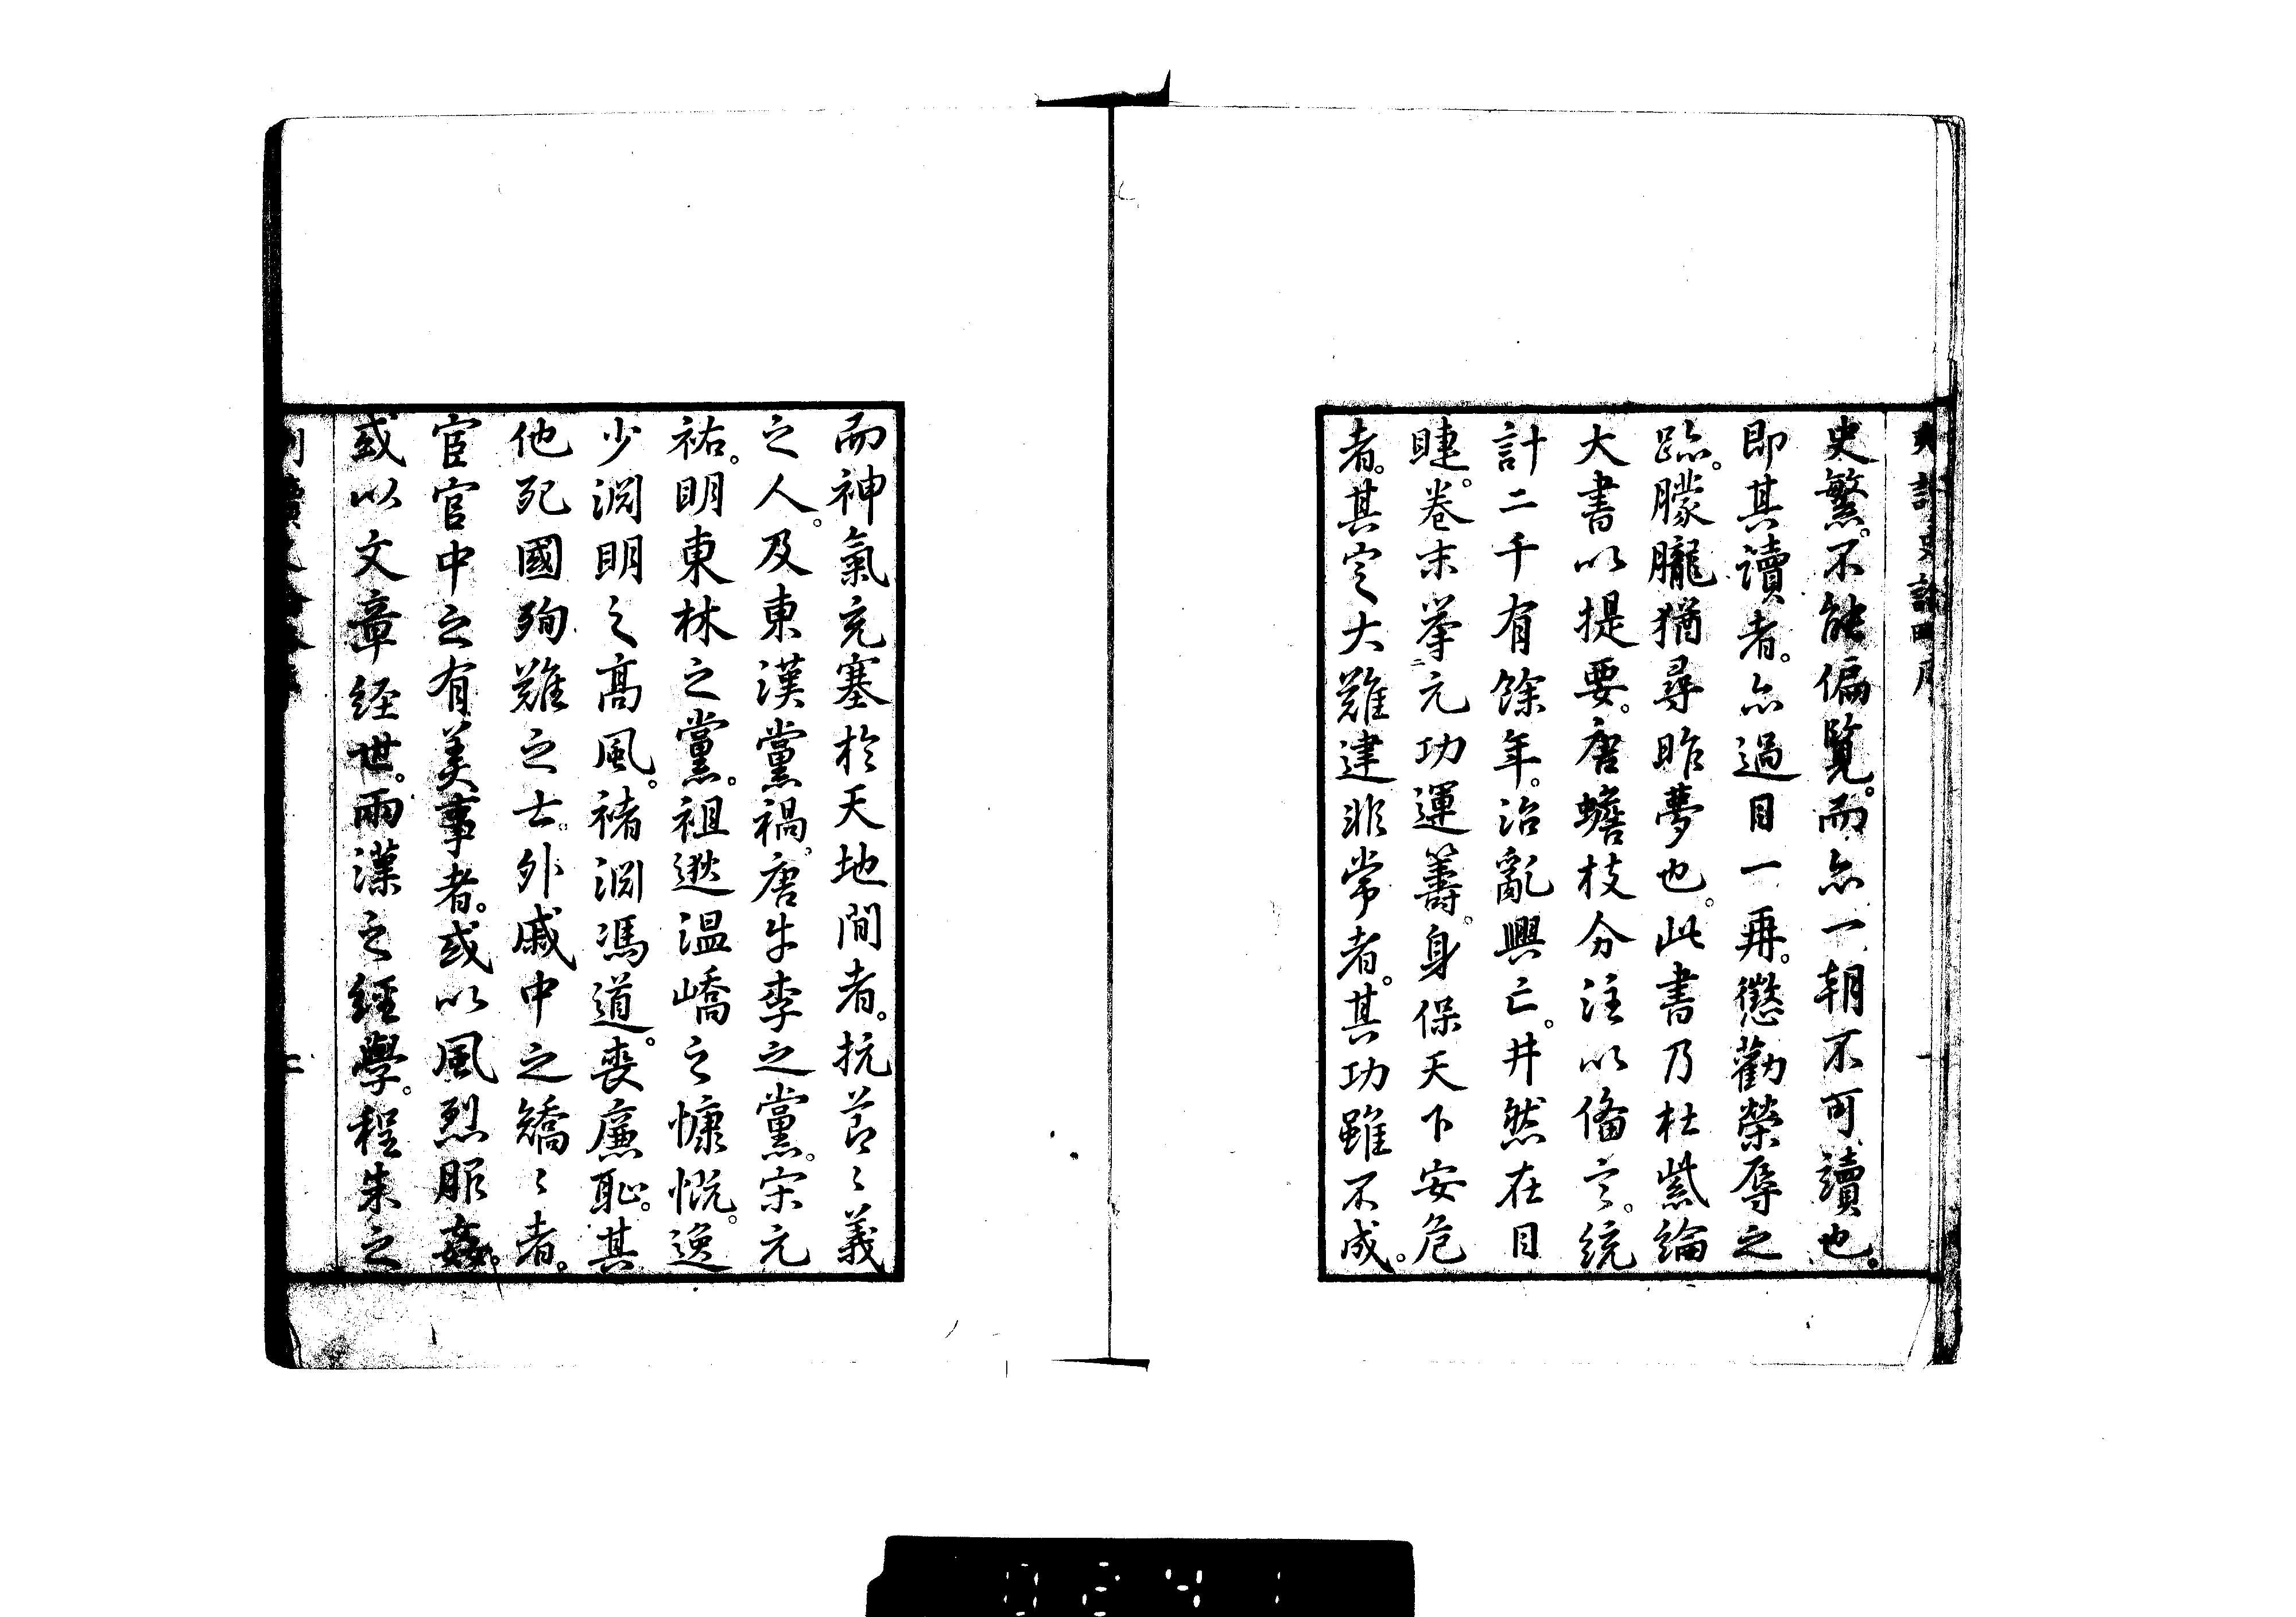 史繁。不能偏覧。而亦一朝不可讀也。
即其讀者。亦過目一再。懲勸榮辱之
跡。朦朧猶尋昨夢也。此書乃杜紫綸
大書以提要。唐蟾枝分注以備言。統
計二千有餘年。治亂興亡。井然在目
睫。卷末挙元功運籌。身保天下安危
者。其定大難建非常者。其功雖不成。
而神氣充塞於天地間者。抗節々義
之人。及東漢黨禍。唐牛李之黨。宋元
祐。明東林之黨。祖逖温嶠之慷慨。逸
少淵明之高風。褚淵馮道。喪廉恥。其
他死國殉難之士。外戚中之矯々者。
宦官中之有美事者。或以風烈服姦。
或以文章経世。兩漢之經學。程朱之
0241